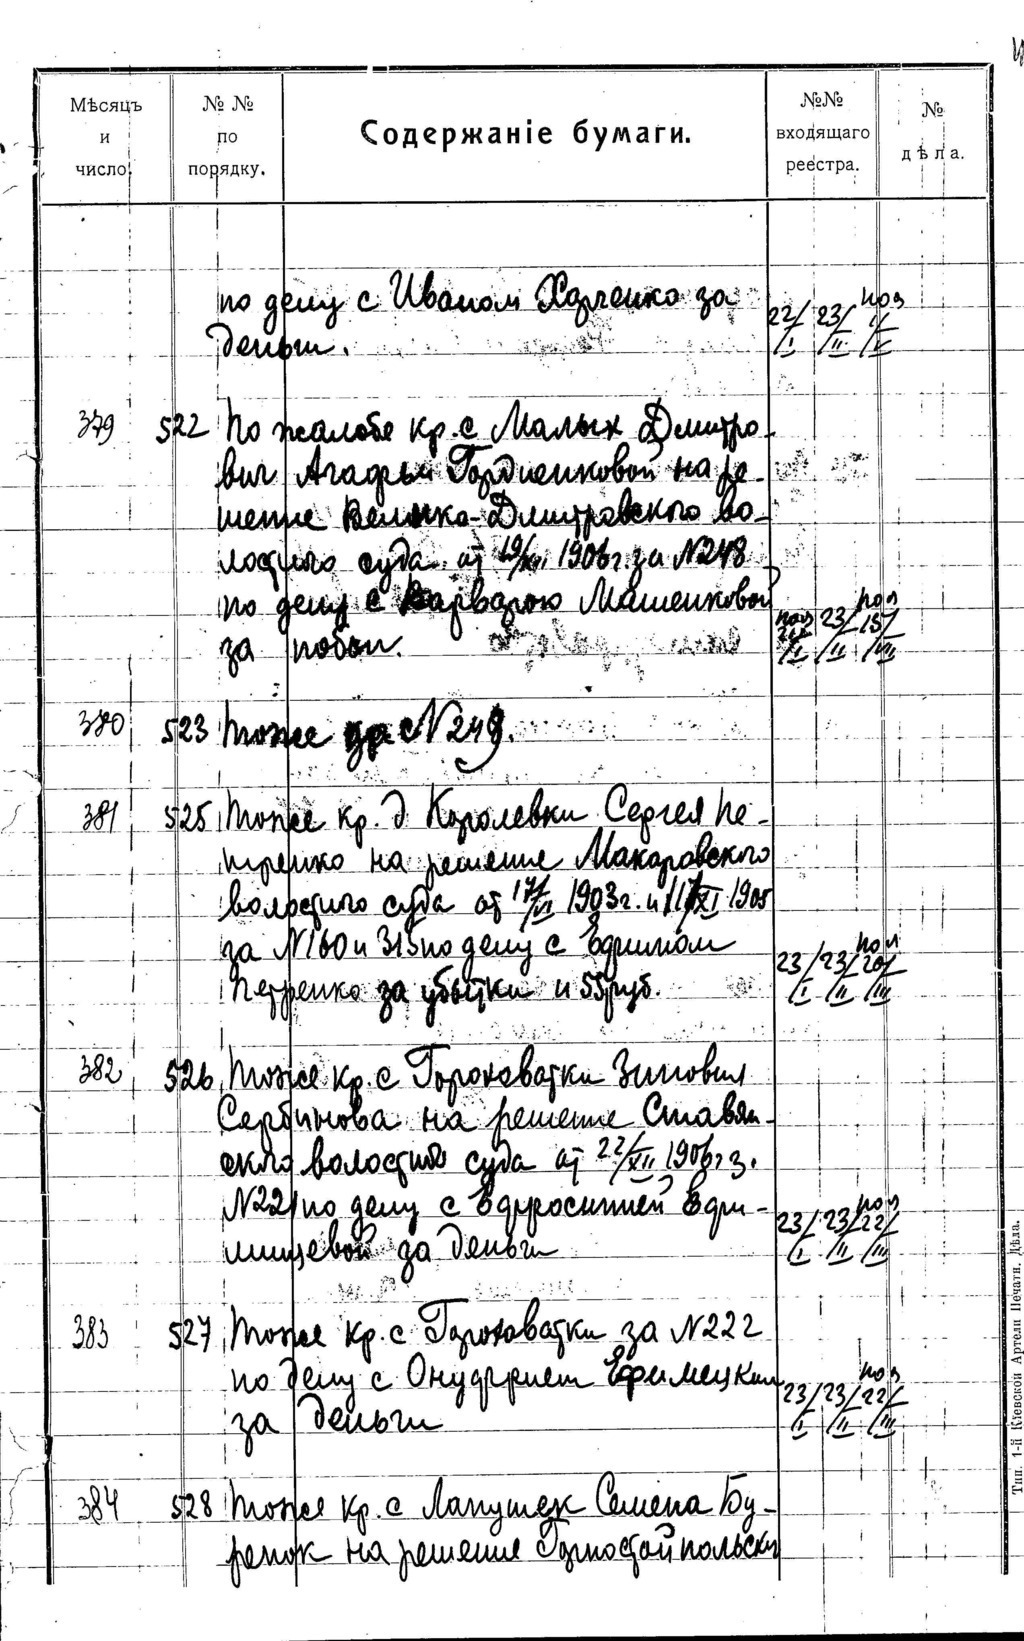 Мѣсяцъ и число.
№ № по порядку.
Содержаніе бумаги.
№№ входящаго реестра.
№ дѣла.
по делу с Иваном Харченко за
деньги.
22/I 23/II
379 522 По жалобе кр. с. Малых Дмитро-
вич Агафьи Гордиенковой на ре-
шение Велико-Дмитровского во-
лостного суда от 19/XII 1906 г. за N248
по делу с Варварою Машенковой
за побои.
23/II 15/III
380 523 Тоже N249.
381 525 Тоже кр. д. Королевки Сергея Пе-
тренко на решение Макаровского
волостного суда от 17/VI 1903 г. и 17/XI 1905
за N160 и 315 по делу с Ефимом
Петренко за убытки и 55 руб.
23/I 23/II 20/III
382 526 Тоже кр. с. Гороховатки Зиновия
Сербинова на решение Ставян-
ского волостного суда от 22/XII 1906 г. з.
N221 по делу с Ефросинией Ефи-
мищевой за деньги
23/I 23/II 22/III
383 527 Тоже кр. с. Гороховатки за N222
по делу с Онуфрием Ефимецким
за деньги
23/I 23/II 22/III
384 528 Тоже кр. с. Лапутек Семена Бу-
ренок на решение Горностайпольск
Тип. 1-й Кіевской Артели Печатн. Дѣла.